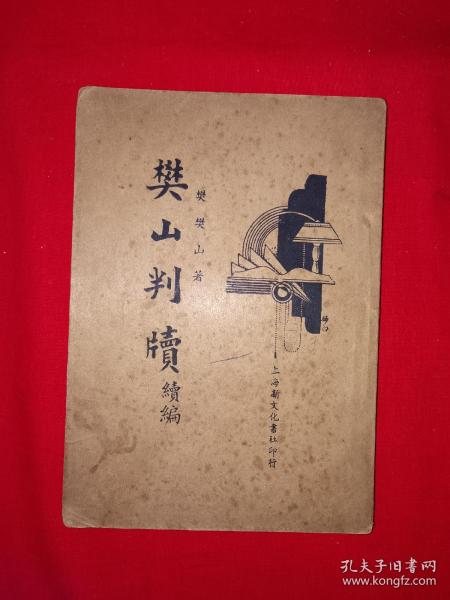 樊山判牘續編
樊樊山著
上海新文化書社印行
孔夫子旧书网
www.kongfz.com